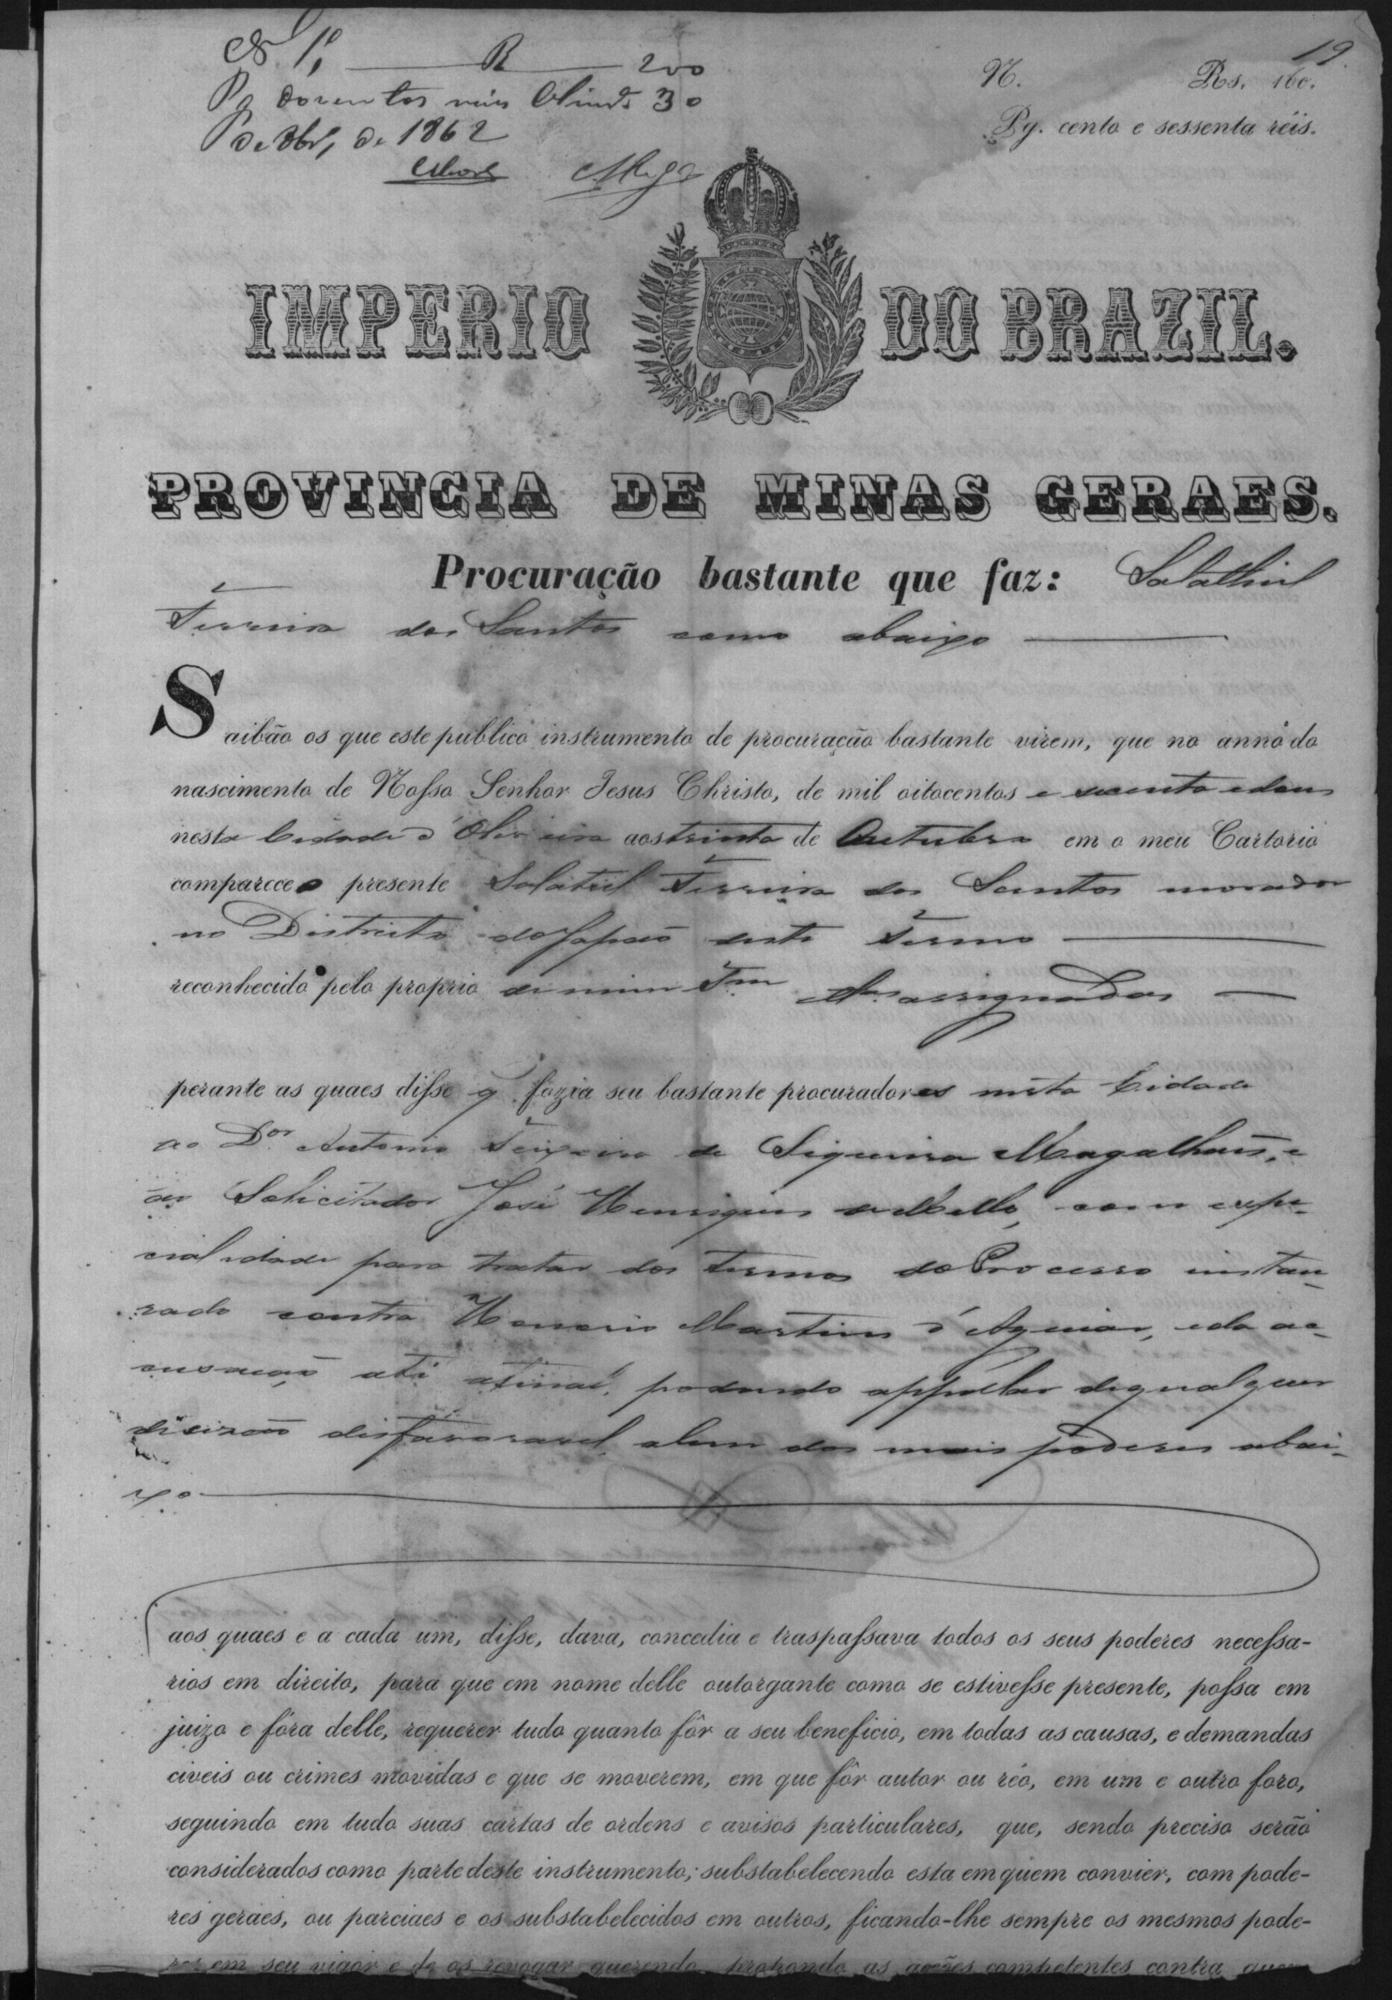 19
N. 1º R 200 N. Rs. 160.
Pg duzentos reis 30 Pg. cento e sessenta réis.
de 8br, de 1862
IMPERIO DO BRAZIL.
PROVINCIA DE MINAS GERAES.
Procuração bastante que faz: Salathiel
Ferreira dos Santos como abaixo
Saibão os que este publico instrumento de procuração bastante virem, que no anno do
nascimento de Nosso Senhor Jesus Christo, de mil oitocentos e secenta e dous
nesta Cidade d'Oliveira aos trinta de Outubro em o meu Cartorio
comparece o presente Salatiel Ferreira dos Santos morador
no Districto do Japão deste Termo
reconhecido pelo proprio de mim Tm assignadas
perante as quaes disse q fazia seu bastante procuradores nesta Cidade
ao Dor Antonio Teixeira de Siqueira Magalhães, e
ao Solicitador José Henriques de Mello, com espe-
cialidade para tratar dos termos do Processo instau-
rado contra Honorio Martins d'Aguiar, e da ac-
cusação até afinal, podendo appellar de qualquer
decizão disfavoravel, alem dos mais poderes abai-
xo
aos quaes e a cada um, disse, dava, concedia e traspassava todos os seus poderes necessa-
rios em direito, para que em nome delle outorgante como se estivesse presente, possa em
juizo e fóra delle, requerer tudo quanto fôr a seu beneficio, em todas as causas, e demandas
civeis ou crimes movidas e que se moverem, em que fôr autor ou réo, em um e outro foro,
seguindo em tudo suas cartas de ordens e avisos particulares, que, sendo preciso serão
considerados como parte deste instrumento; substabelecendo esta em quem convier, com pode-
res geraes, ou parciaes e os substabelecidos em outros, ficando-lhe sempre os mesmos pode-
res em seu vigor e de os revogar querendo, propondo as acções competentes contra quem